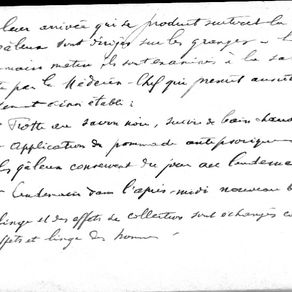 leur arrivée qui se produit surtout le
galeux sont dirigés sur les granges
matin même ils sont examinés à la sa
te par le Médecin-Chef qui prescrit aussit
ement ainsi établi :
Frotte au savon noir, suivie de bain chaud
Application de pommade antipsorique
les galeux conservent du jour au lendemain
Lendemain dans l'après-midi nouveau b
linge et des effets de collection sont échangés co
ffets et linge des hommes